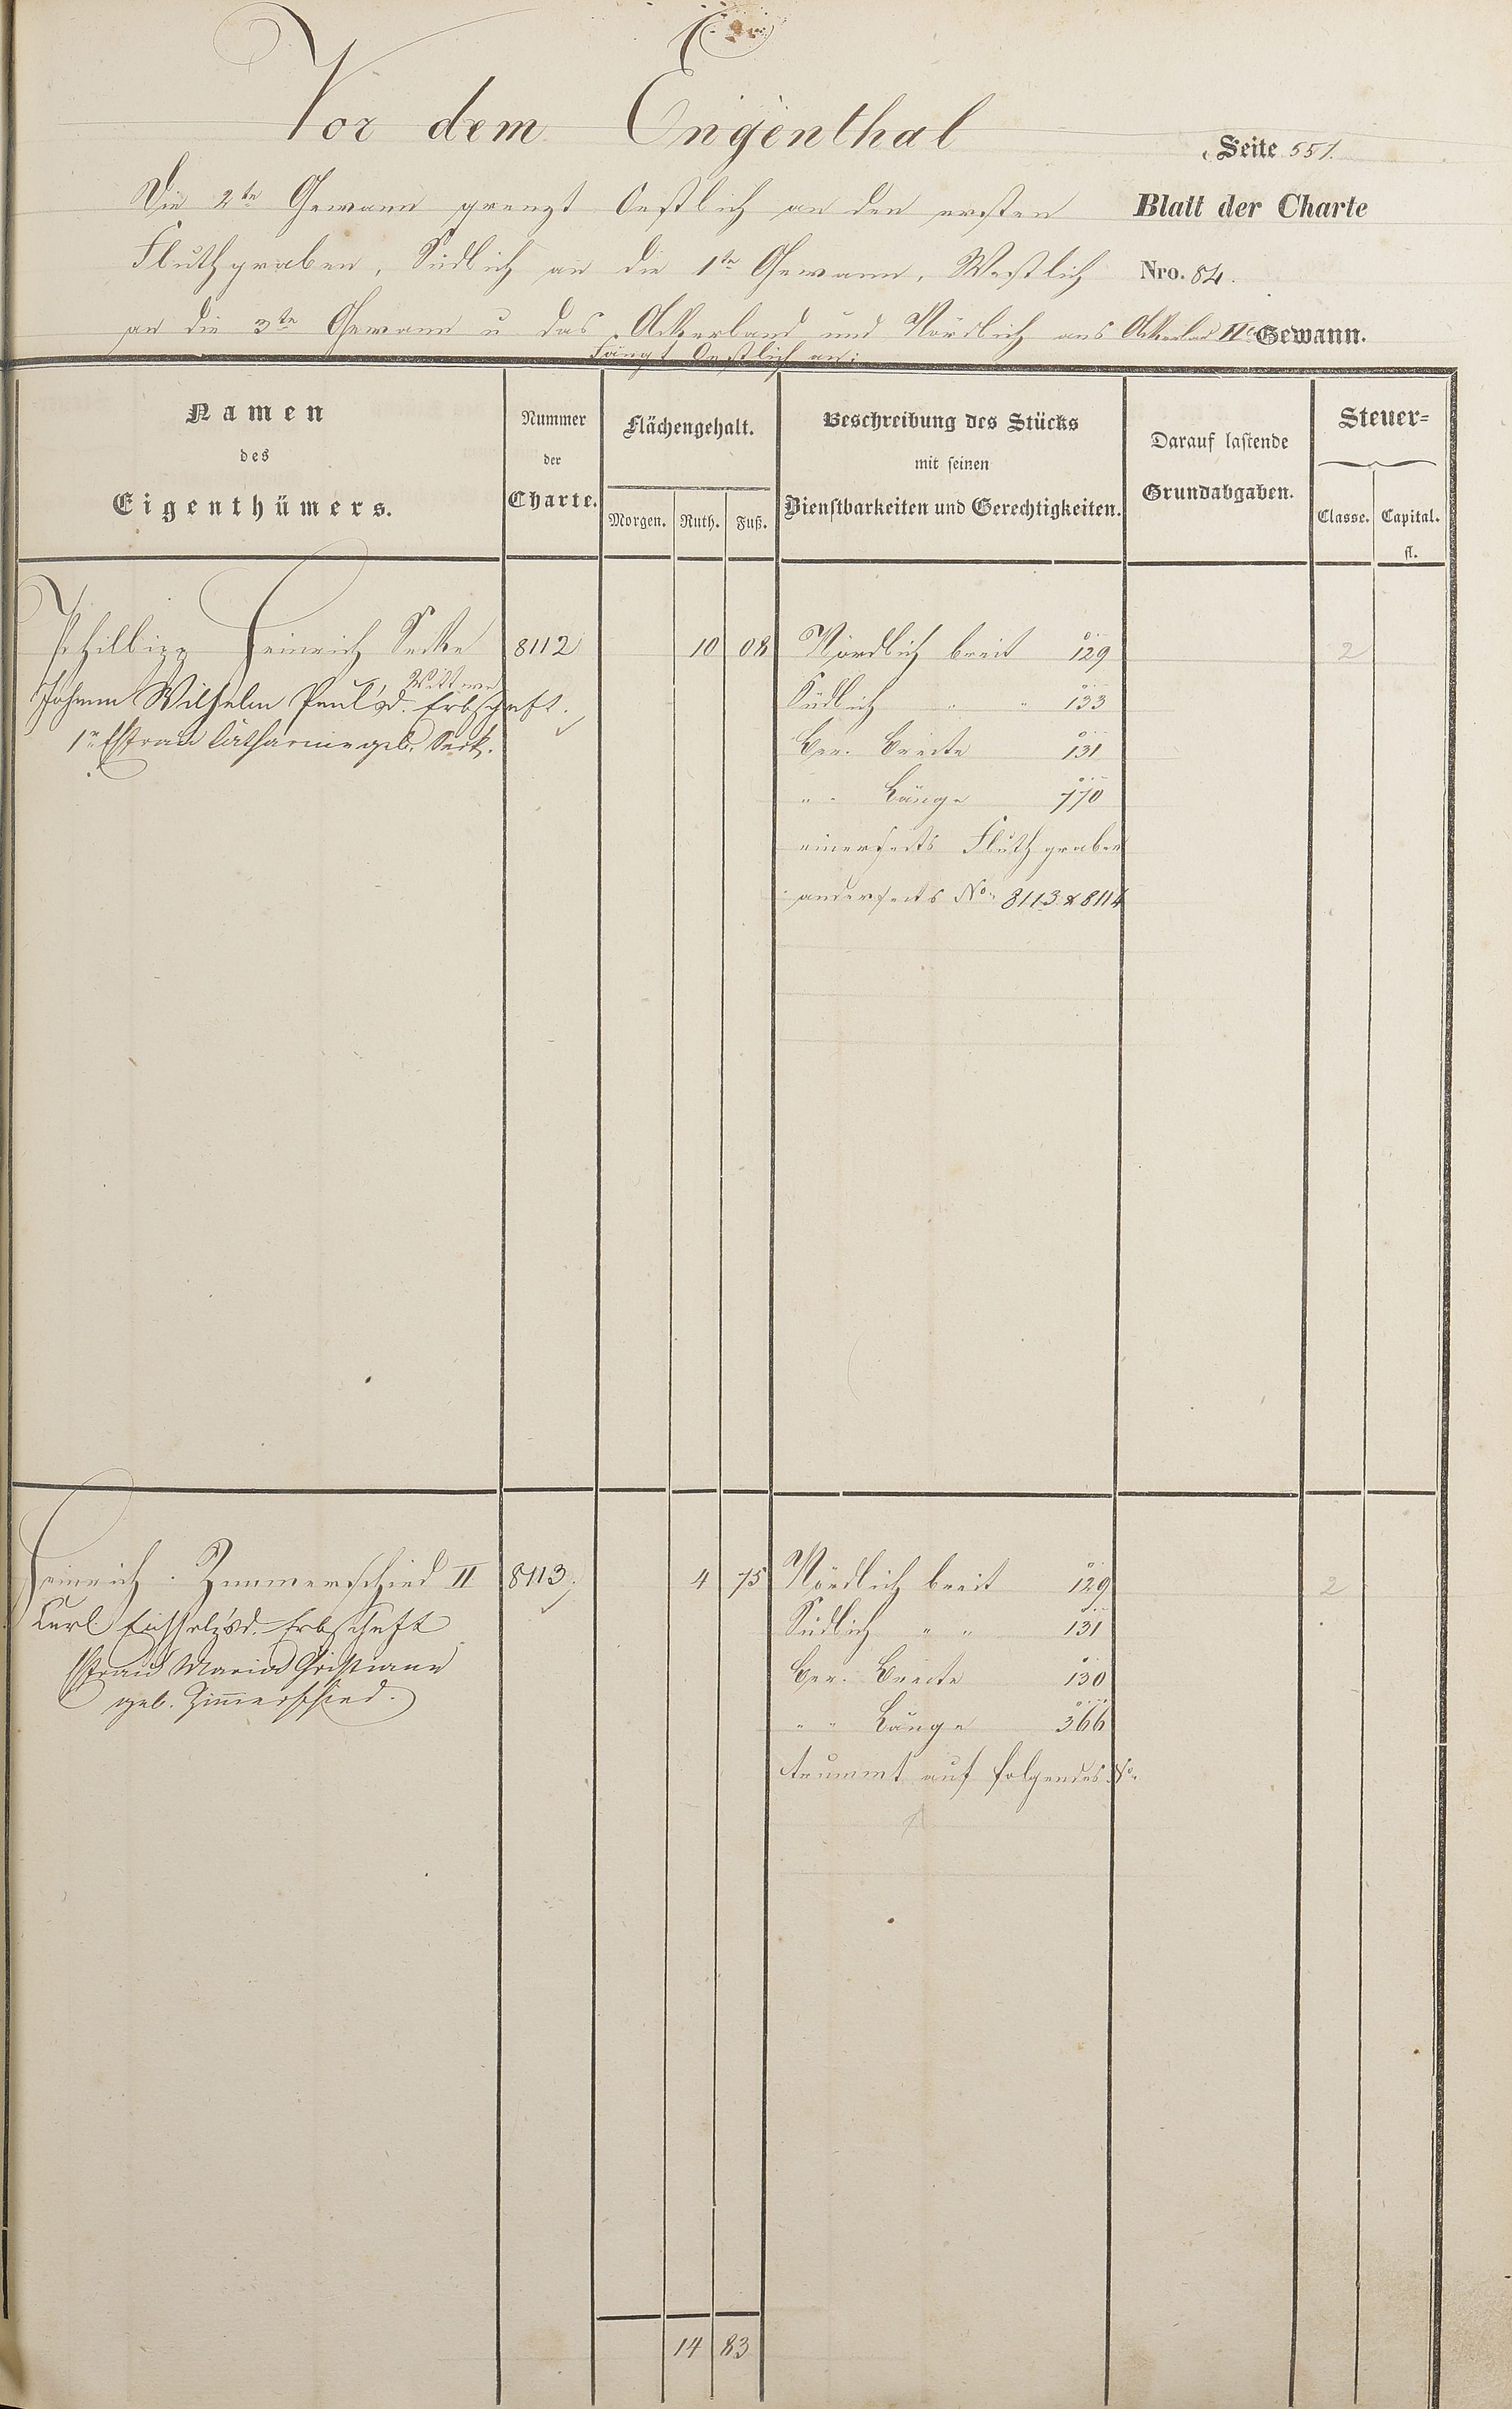 Vor dem Engenthal
Seite 551.
Die 2te Gewann grenzt Oestlich an den ersten
Blatt der Charte
Fluthgraben, Südlich an die 1te Gewann, Westlich
Nro. 84.
an die 3te Gewann u das Ackerland und Nördlich ans Ackerland IIte Gewann.
fängt Oestlich an:
Namen
des
Eigenthümers.
Nummer
der
Charte.
Flächengehalt.
Morgen. Ruth. Fuß.
Beschreibung des Stücks
mit seinen
Dienstbarkeiten und Gerechtigkeiten.
Darauf lastende
Grundabgaben.
Steuer=
Classe. Capital.
fl.
Philipp Heinrich 8112 10 08 Nördlich breit 129 2
Wittwe
Johann Wilhelm Paul's Erbschaft.
Südlich " " 133
1r Ehefrau Catharine geb.
Ger. Breite 131
" " Länge 770
einerseits Fluthgraben
anderseits No. 8113 & 8114
Heinrich Zimmerschied II 8113. 4 75 Nördlich breit 129 2
Carl Erbschaft
Südlich " " 131
Ehefrau Maria Christiane
Ger. Breite 130
geb. Zimmerschied.
" " Länge 366
auf folgendes No.
14 83